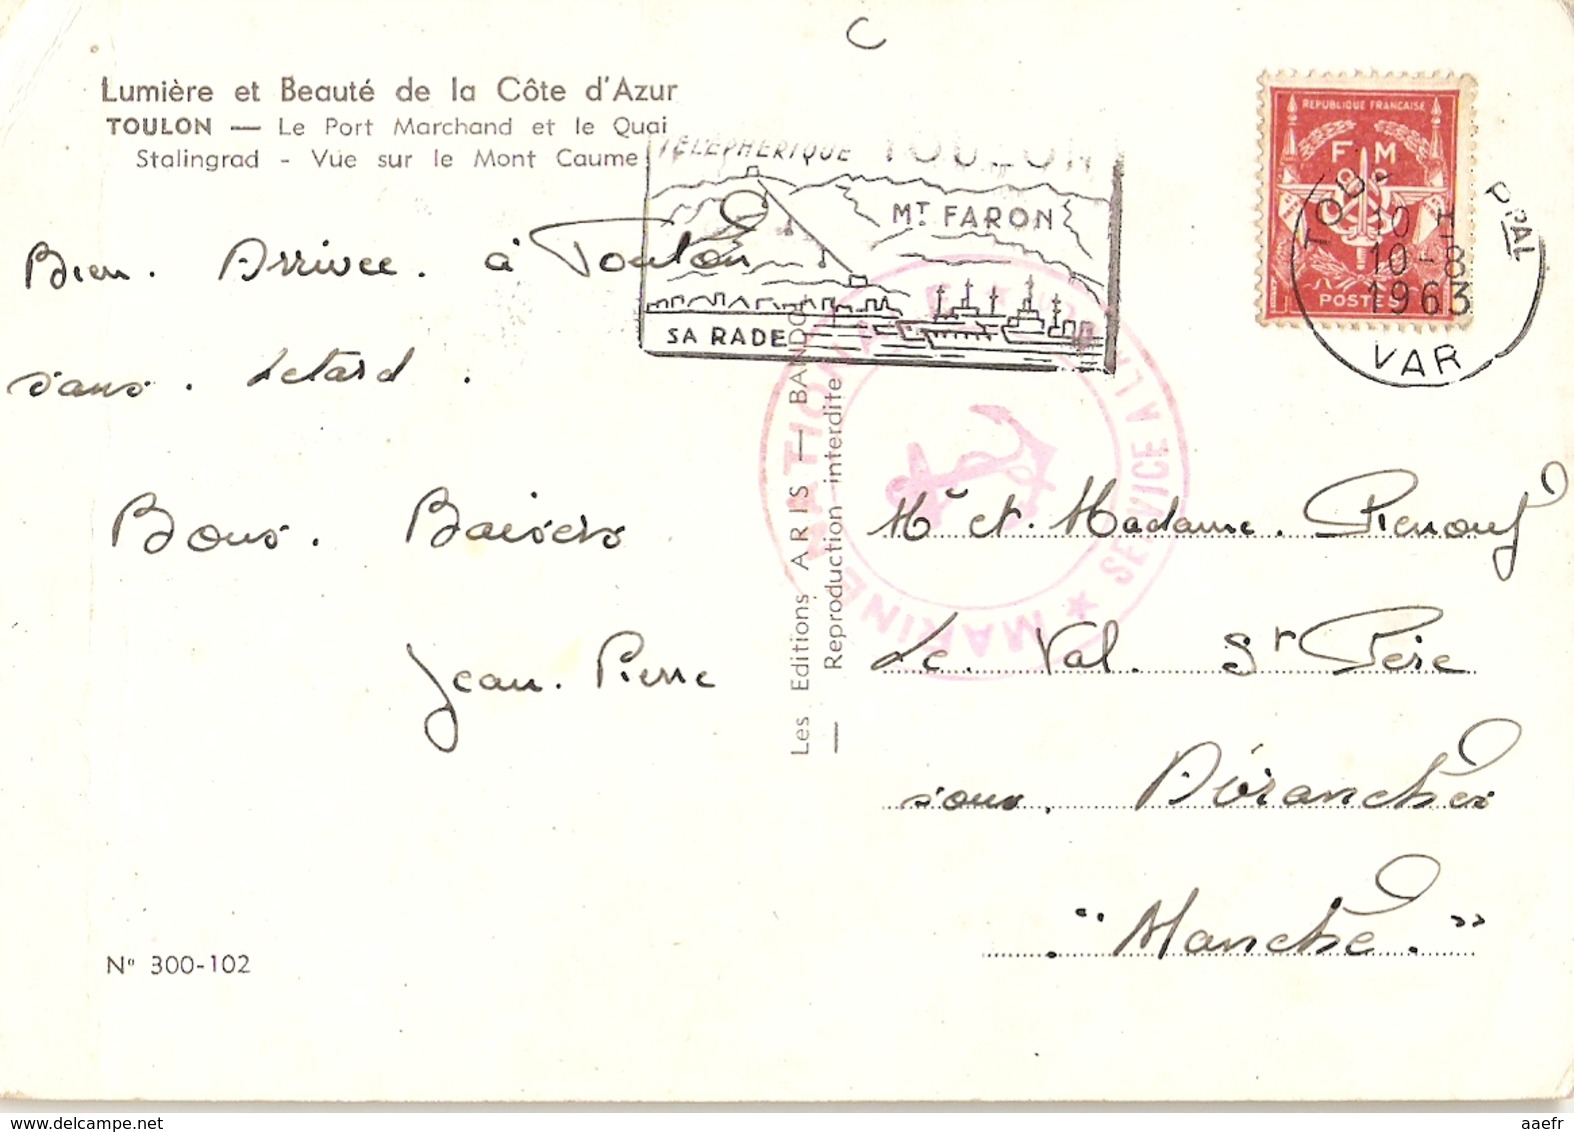 C
Lumière et Beauté de la Côte d'Azur
TOULON — Le Port Marchand et le Quai
Stalingrad - Vue sur le Mont Caume
TÉLÉPHÉRIQUE TOULON
MT FARON
SA RADE
REPUBLIQUE FRANÇAISE
F M
POSTES
TOUL PPAL
10 H
10-8
1963
VAR
Bien. Arrivée. à Toulon
sans. retard.
Bons. Baisers
Jean. Pierre
MARINE NATIONALE
SERVICE A LA MER
Les Editions ARIS — BANDOL
— Reproduction interdite —
Mr et. Madame. Pienouf
Le. Val. St Père
sous. Avranches
"Manche."
N° 300-102
www.delcampe.net
aaefr